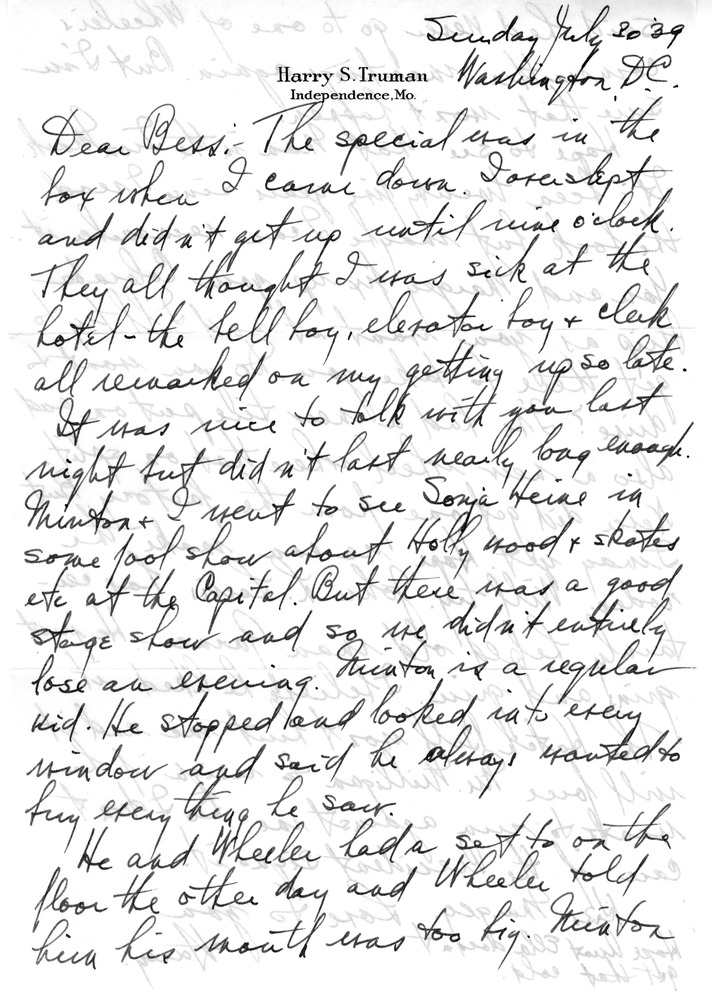 Sunday July 30 '39
Harry S. Truman
Washington, D.C.
Independence, Mo.
Dear Bess:- The special was in the
box when I came down. I overslept
and didn't get up until nine o'clock.
They all thought I was sick at the
hotel - the bell boy, elevator boy & clerk
all remarked on my getting up so late.
It was nice to talk with you last
night but didn't last nearly long enough.
Minton & I went to see Sonja Heine in
some fool show about Holly wood & skates
etc at the Capitol. But there was a good
stage show and so we didn't entirely
lose an evening. Minton is a regular
kid. He stopped and looked into every
window and said he always wanted to
buy everything he saw.
He and Wheeler had a set to on the
floor the other day and Wheeler told
him his mouth was too big. Minton